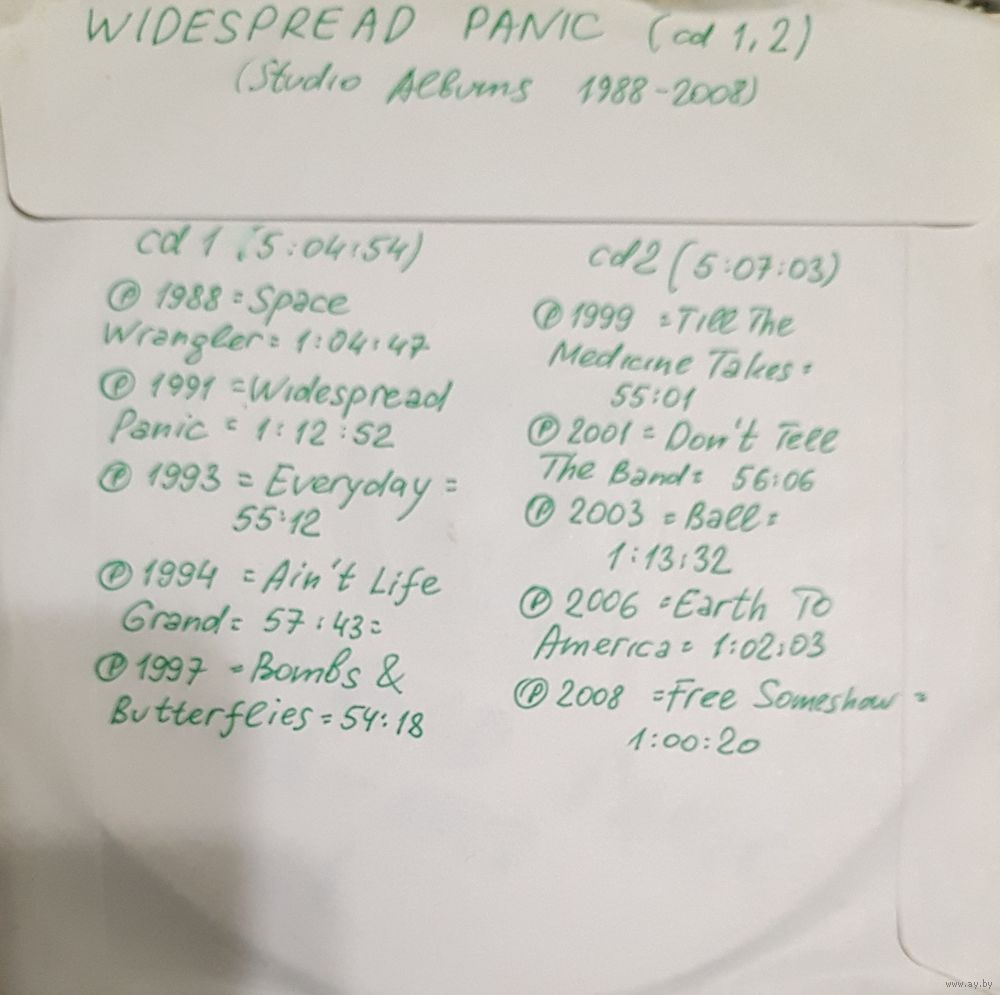 WIDESPREAD PANIC (cd 1,2)
(Studio Albums 1988-2008)
cd 1 (5:04:54)
Ⓟ 1988 = Space
Wrangler = 1:04:47
Ⓟ 1991 = Widespread
Panic = 1:12:52
Ⓟ 1993 = Everyday =
55:12
Ⓟ 1994 = Ain't Life
Grand = 57:43 =
Ⓟ 1997 = Bombs &
Butterflies = 54:18
cd 2 (5:07:03)
Ⓟ 1999 = Till The
Medicine Takes =
55:01
Ⓟ 2001 = Don't Tell
The Band = 56:06
Ⓟ 2003 = Ball =
1:13:32
Ⓟ 2006 = Earth To
America = 1:02:03
Ⓟ 2008 = Free Someshow =
1:00:20
www.ay.by